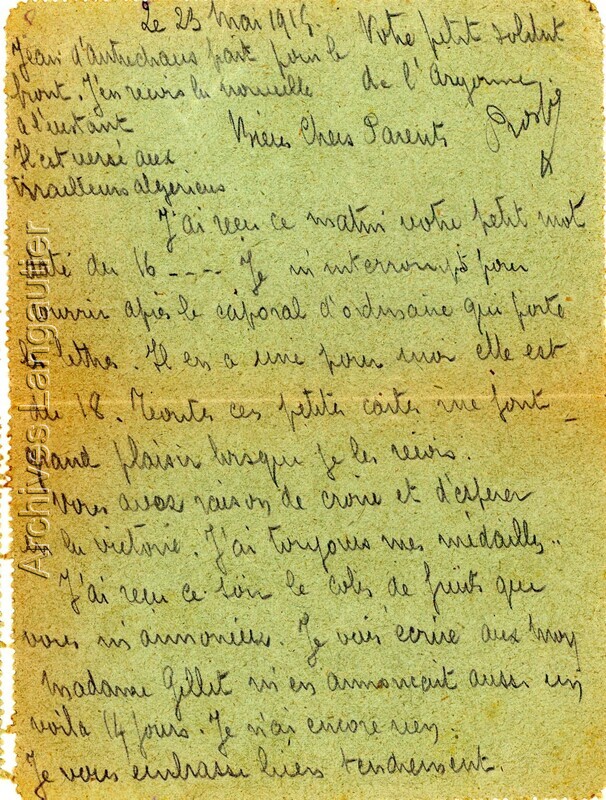 Le 23 Mai 1915.
Jean d'Antrechaus part pour le
front. J'en reçois la nouvelle
à l'instant
Il est versé aux
tirailleurs algériens
Votre petit soldat
de l'Argonne.
Biens Chers Parents
J'ai reçu ce matin votre petit mot
daté du 16 ---- Je m'interromps pour
courrir après le caporal d'ordinaire qui porte
les lettres. Il en a une pour moi elle est
du 18. Toutes ces petites cartes me font
grand plaisir lorsque je les reçois.
Vous avez raison de croire et d'espérer
en la victoire. J'ai toujours mes médailles..
J'ai reçu ce soir le colis de fruits que
vous m'annonciez. Je vais écrire aux
Madame Gillet m'en annonçait aussi un
voilà 14 jours. Je n'ai encore rien.
Je vous embrasse bien tendrement.
Archives Langautier